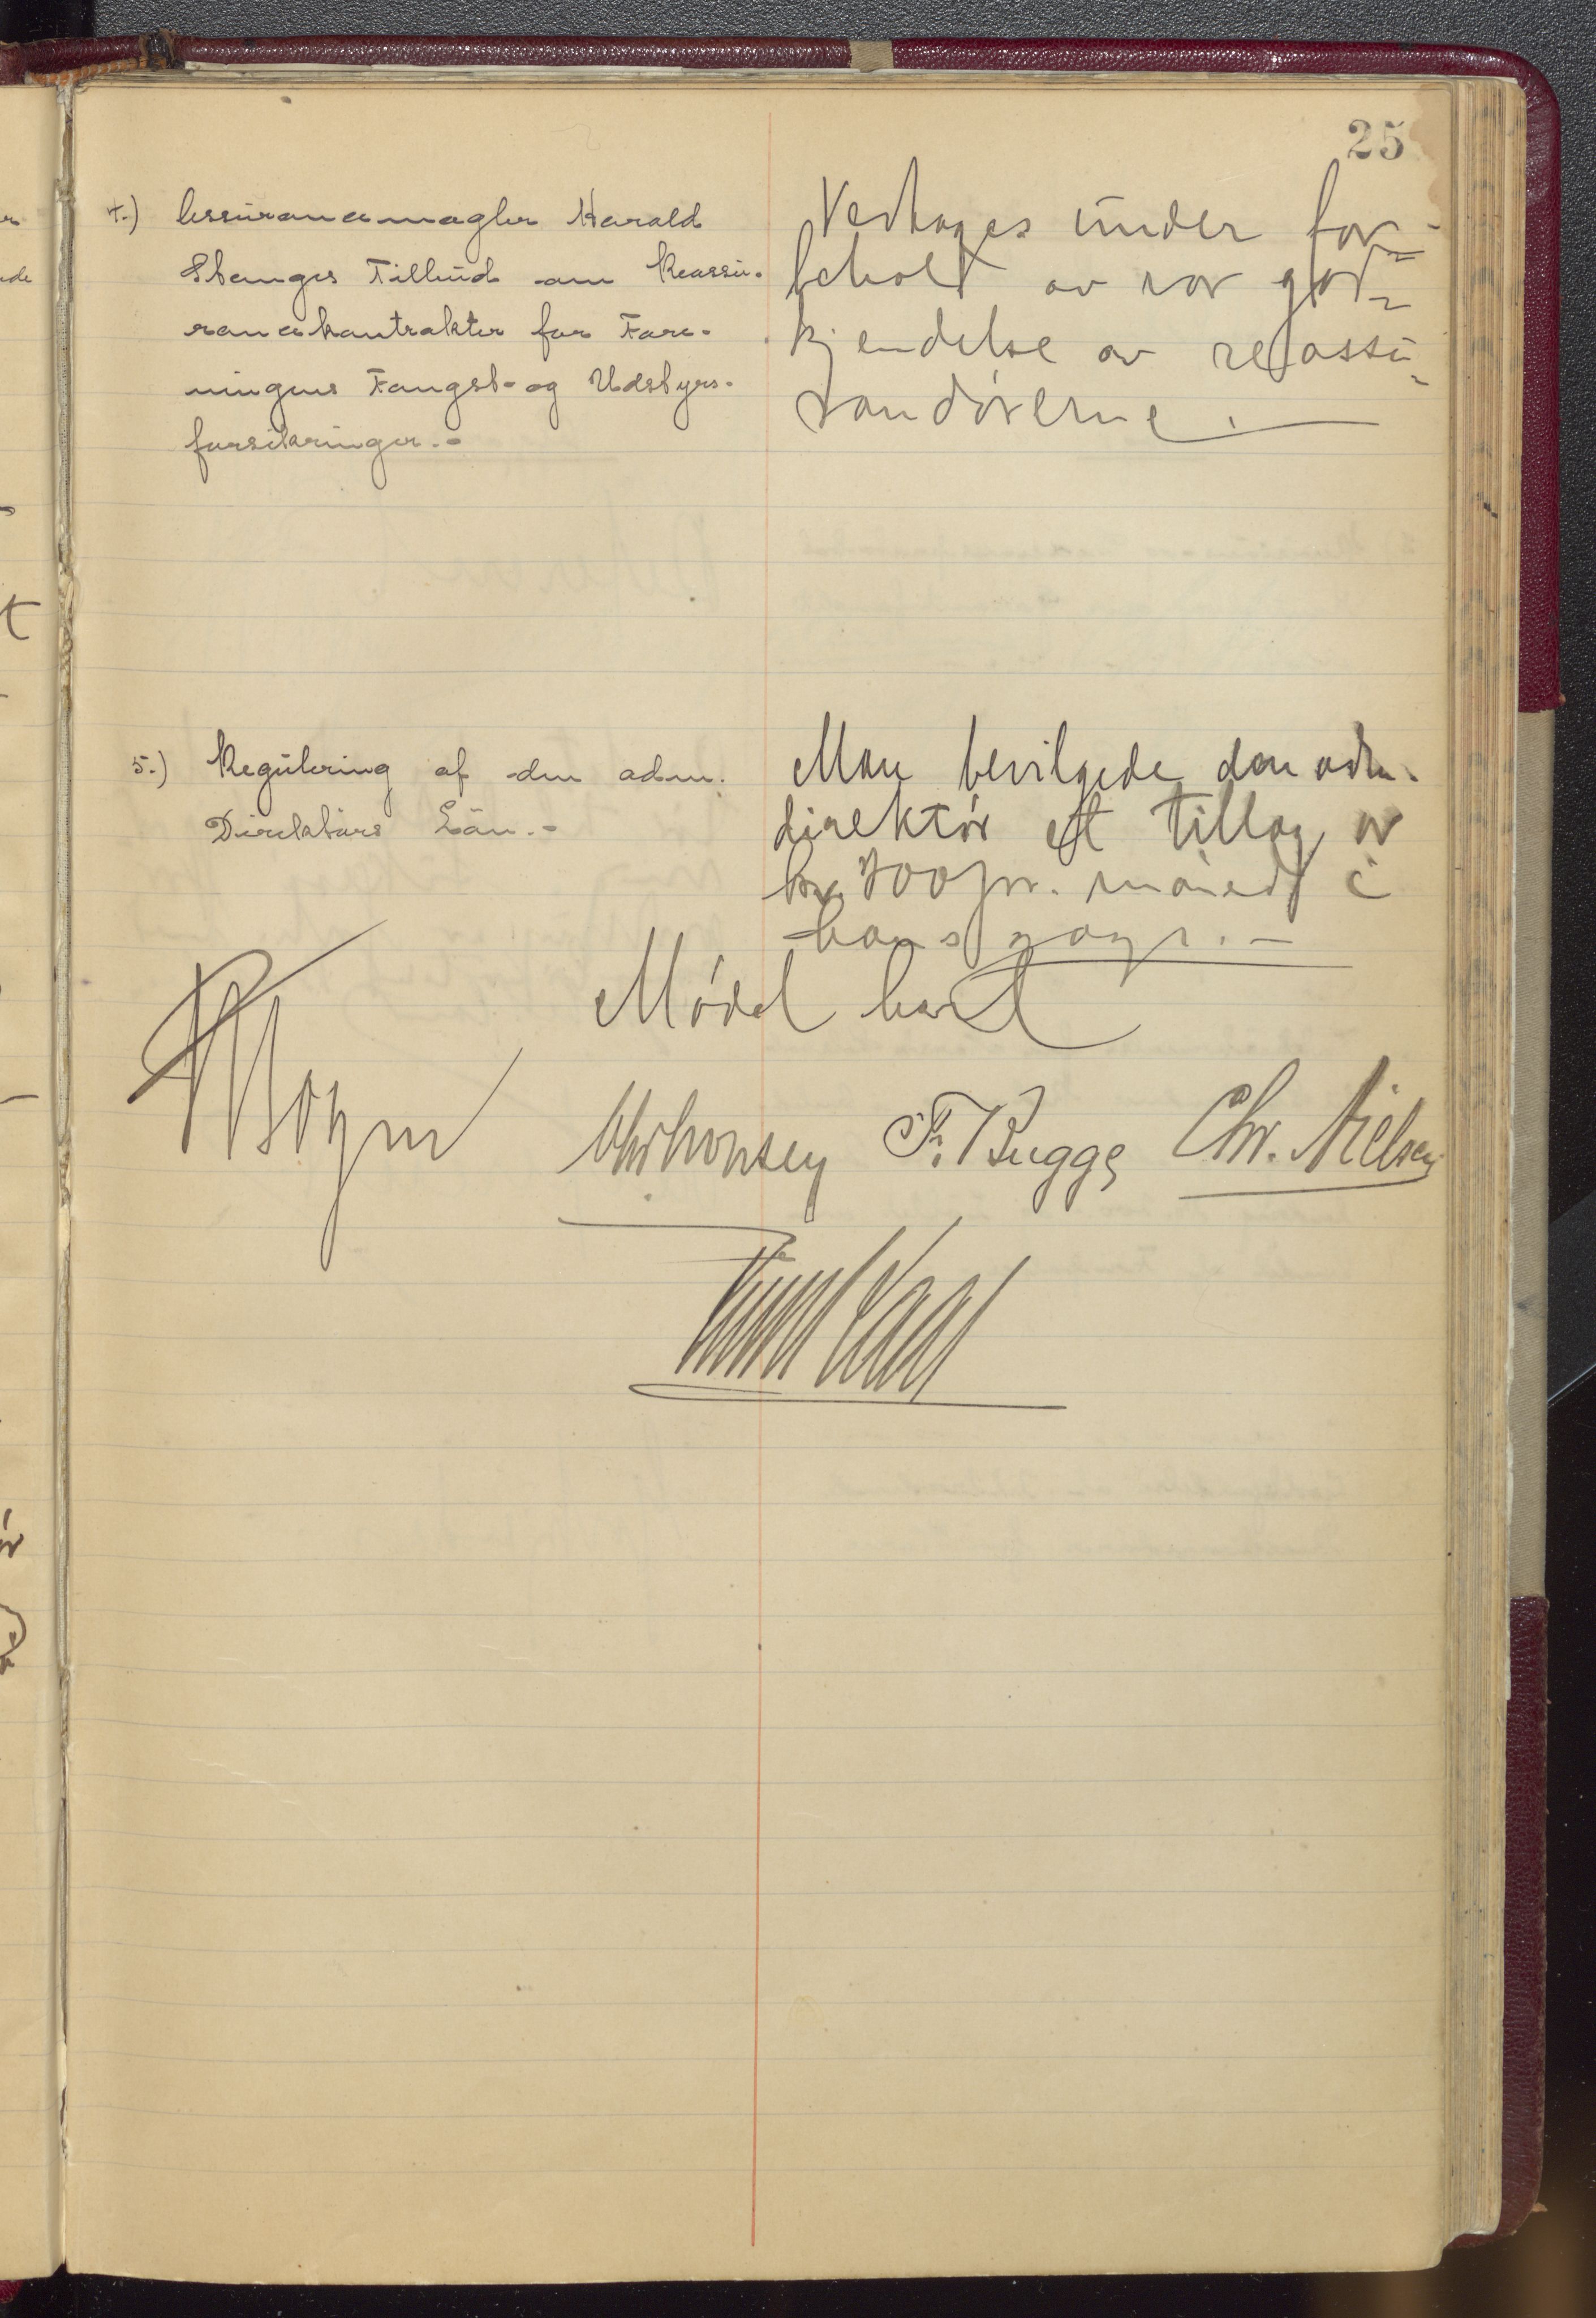 25
4.) Assurancemægler Harald
Stanges Tilbud om Reassu-
rancekontrakter for Fore-
ningens Fangst- og Udstyrs-
forsikringer.-
Vedtages under for-
behold av vor god-
kjendelse av reassu-
randørerne.
5.) Regulering af den adm.
Direktørs Løn.-
Man bevilgede den adm.
direktør et tillæg av
kr. 400 pr. måned i
hans gage.-
Mødet hævet
Chr. Nielsen
F. Bugge